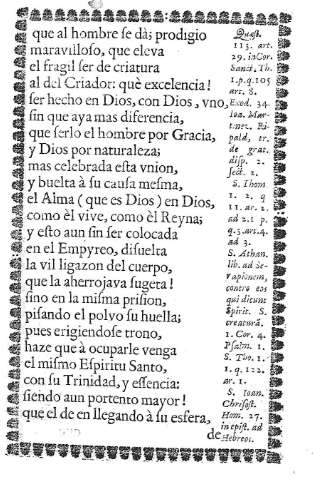 que al hombre se dà; prodigio
maravilloso, que eleva
el fragil ser de criatura
al del Criador: què excelencia!
ser hecho en Dios, con Dios, vno,
sin que aya mas diferencia,
que serlo el hombre por Gracia,
y Dios por naturaleza;
mas celebrada esta vnion,
y buelta à su causa mesma,
el Alma (que es Dios) en Dios,
como èl vive, como èl Reyna;
y esto aun sin ser colocada
en el Empyreo, disuelta
la vil ligazon del cuerpo,
que la aherrojava sugeta!
sino en la misma prision,
pisando el polvo su huella;
pues erigiendose trono,
haze que à ocuparle venga
el mismo Espiritu Santo,
con su Trinidad, y essencia:
siendo aun portento mayor!
que el de en llegando à su esfera,
de
Quæst.
113. art.
29. in Cor.
Sanct. Th.
1. p. q. 105
art. 8.
Exod. 34.
Ioa. Mar-
tinez. Ri-
pald, tr.
de grat.
disp. 2.
sect. 1.
S. Thom
1. 2. q
11. ar. 1.
ad 2. 1 p.
q. 3. art. 4.
ad 3.
S. Athan.
lib. ad Se-
rapionem,
contra eos
qui dicunt
Spirit. S.
creaturã.
1. Cor. 4.
Psalm. 1.
S. Tho. 1.
1. q. 122.
ar. 1.
S. Ioan.
Chrisost.
Hom. 27.
in epist. ad
Hebreos.